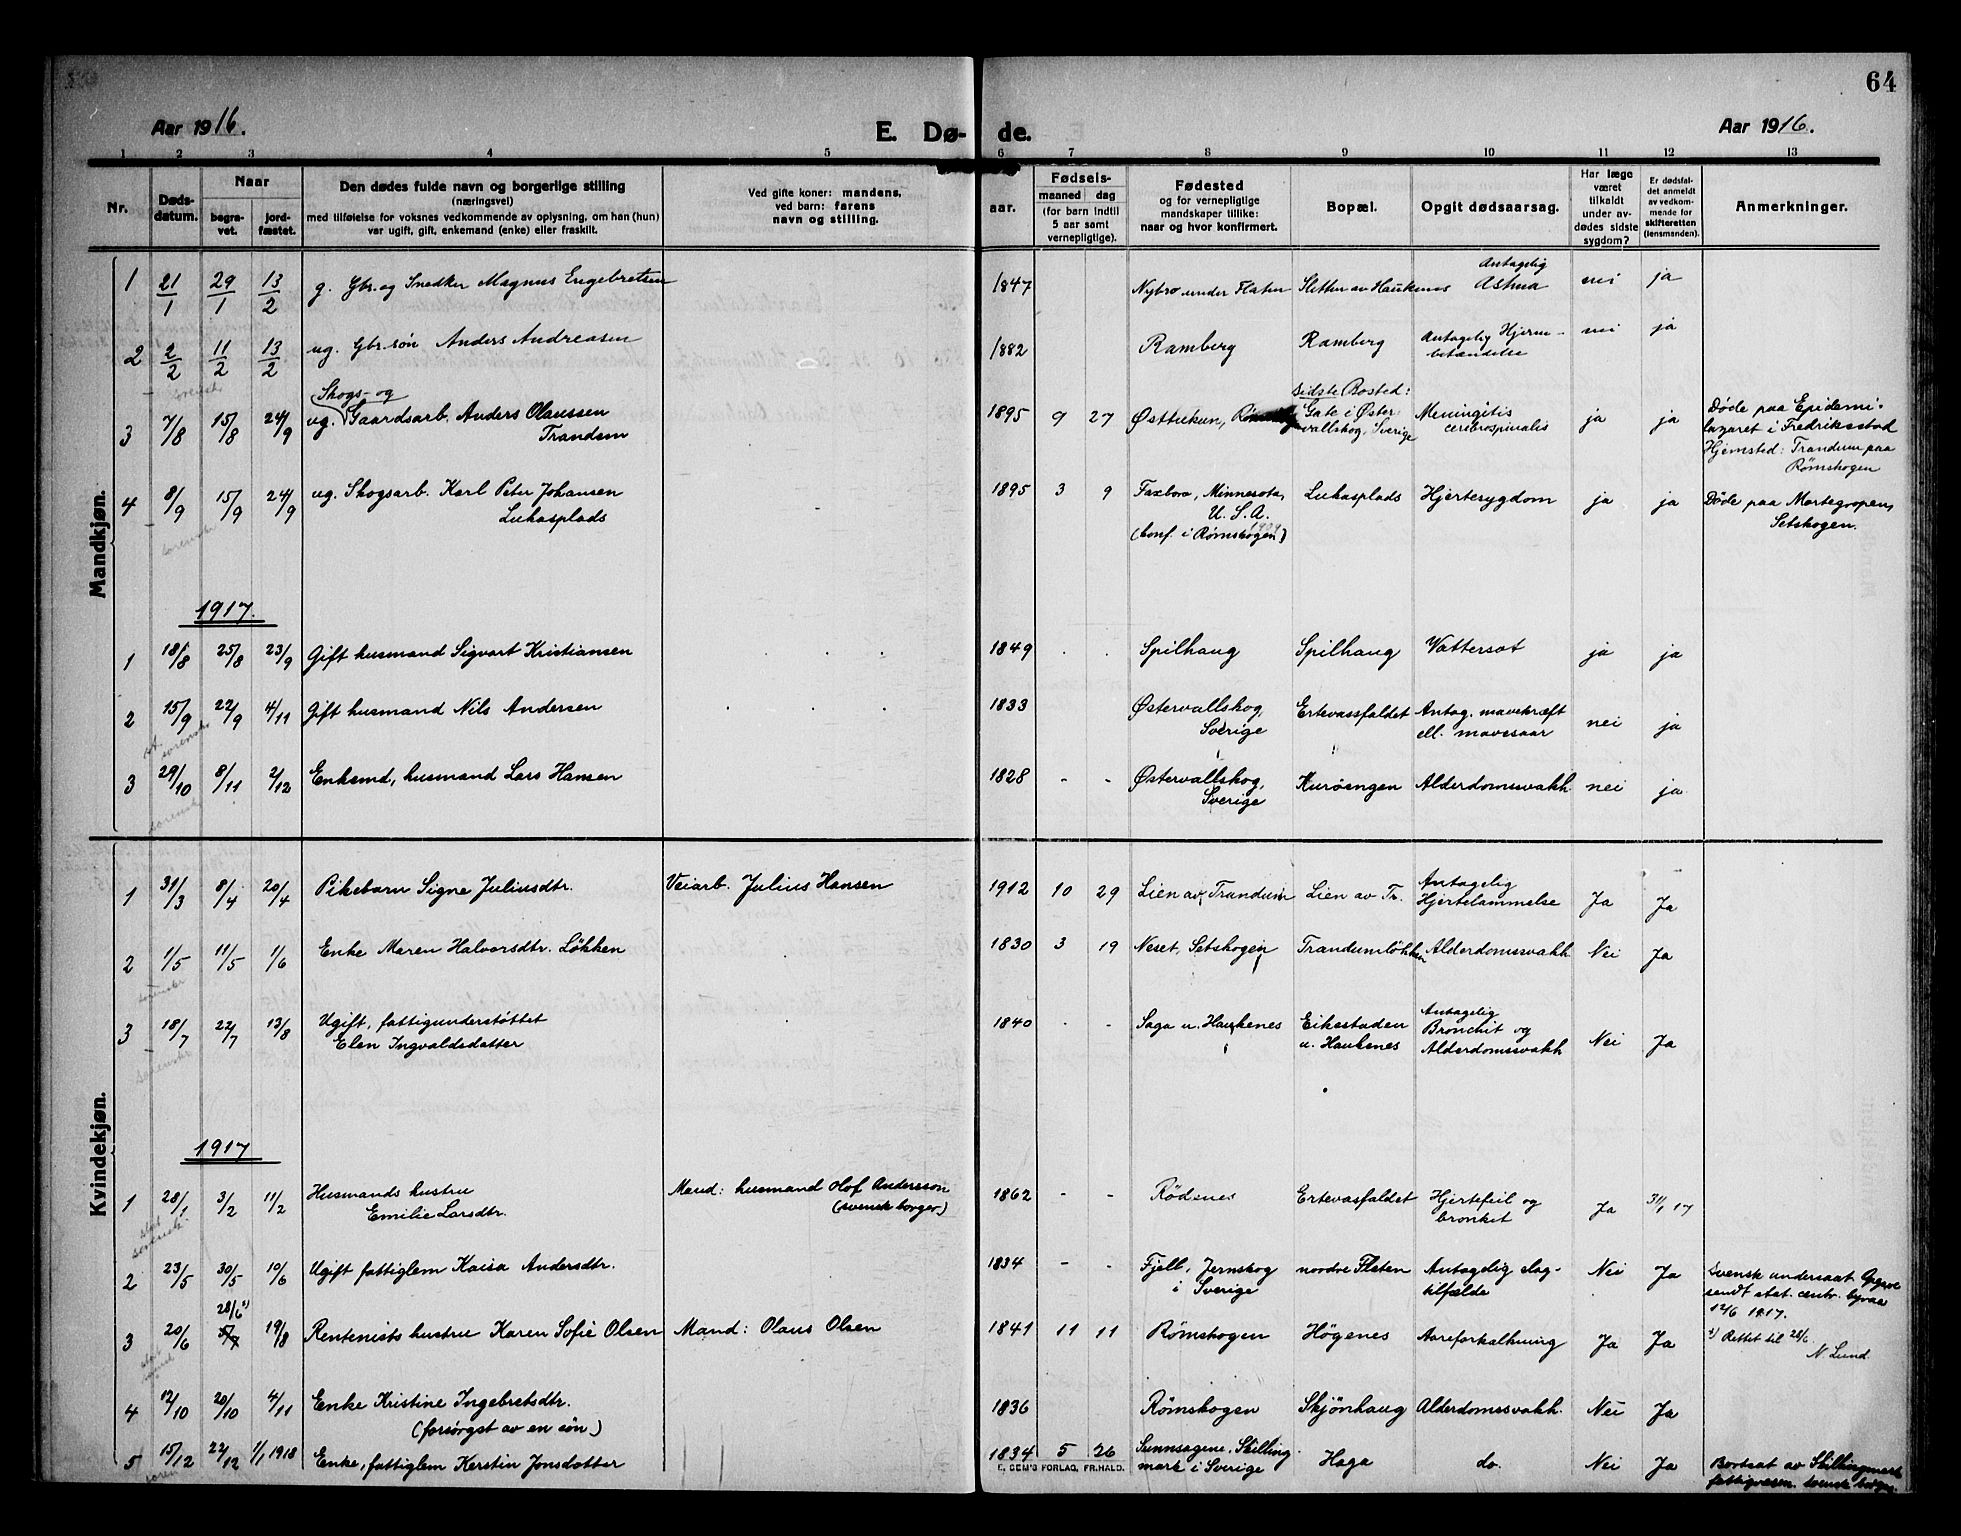 64
Aar 1916.
E. Dø-
de.
Aar 1916.
1 2 3 4 5 6 7 8 9 10 11 12 13
Nr.
Døds-
datum.
Naar
begra-
vet.
jord-
fæstet.
Den dødes fulde navn og borgerlige stilling
(næringsvei)
med tilføielse for voksnes vedkommende av oplysning, om han (hun)
var ugift, gift, enkemand (enke) eller fraskilt.
Ved gifte koner: mandens,
ved barn: farens
navn og stilling.
Fødsels-
aar.
maaned dag
(for barn indtil
5 aar samt
vernepligtige).
Fødested
og for vernepligtige
mandskaper tillike:
naar og hvor konfirmert.
Bopæl.
Opgit dødsaarsag.
Har læge
været
tilkaldt
under av-
dødes sidste
sygdom?
Er dødsfal-
det anmeldt
av vedkom-
mende for
skifteretten
(lensmanden).
Anmerkninger.
Mandkjøn.
1 21/1 29/1 13/2 g. Gbr. og Snedker Magnus Engebretsen 1847 Nybro under Flaten Sletten av Haukenes Antagelig
Astma nei ja
2 2/2 11/2 13/2 ug. Gbr. søn Anders Andreasen 1882 Ramberg Ramberg Antagelig Hjerne-
betændelse nei ja
3 7/8 15/8 24/9 Skogs- og
ug. Gaardsarb. Anders Olaussen
Trandem 1895 9 27 Østtukun, Sidste Bosted:
Gate i Øster
vallskog, Sverige Meningitis
cerebrospinalis ja ja Døde paa Epidemi-
lazaret i Fredriksstad
Hjemsted: Trandum paa
Rømskogen
4 8/9 15/9 24/9 ug. Skogsarb. Karl Peter Johansen
Lukasplads 1895 3 9 Faxboro, Minnesota,
U. S. A.
1909
(konf. i Rømskogen) Lukasplads Hjertesygdom ja ja Døde paa Mortegropen,
Setskogen.
1917.
1 18/8 25/8 23/9 Gift husmand Sigvart Kristiansen 1849 Spilhaug Spilhaug Vattersot ja ja
2 15/9 22/9 4/11 Gift husmand Nils Andersen 1833 Østervallskog,
Sverige Ertevassfaldet Antag. mavekræft
ell. mavesaar nei ja
3 29/10 8/11 2/12 Enkemd, husmand Lars Hansen 1828 - - Østervallskog,
Sverige Kurøengen Alderdomssvakh. nei ja
Kvindekjøn.
1 31/3 8/4 20/4 Pikebarn Signe Juliusdtr. Veiarb. Julius Hansen 1912 10 29 Lien av Trandum Lien av Tr. Antagelig
Hjertelammelse Ja Ja
2 1/5 11/5 1/6 Enke Maren Halvorsdtr. Løkken 1830 3 19 Neset, Setskogen Trandumløkken Alderdomssvakh. Nei Ja
3 18/7 22/7 13/8 Ugift, fattigunderstøttet
Elen Ingvaldsdatter 1840 - - Saga u. Haukenes Eikestaden
u. Haukenes Antagelig
Bronchit og
Alderdomssvakh Nei Ja
1917
1 28/1 3/2 11/2 Husmands hustru
Emilie Larsdtr. Mand: husmand Olof Andersson
(svensk borger) 1862 - - Rødenes Ertevasfaldet Hjertefeil og
bronkit Ja 31/1 17
2 23/5 30/5 10/6 Ugift fattiglem Kaisa Andersdtr. 1834 - - Fjell, Jernskog
i Sverige nordre Flaten Antagelig slag-
tilfælde Nei Ja Svensk undersaat Opgave
sendt stat. centr. byraa
12/6 1917.
3 20/6 28/6 1) 5/7 19/8 Rentenists hustru Karen Sofie Olsen Mand: Olaus Olsen 1841 11 11 Rømskogen Høgenes Aareforkalkning Ja Ja 1) Rettet til 28/6.
N. Lund
4 12/10 20/10 4/11 Enke Kristine Ingebretsdtr.
(forsørgst av en søn) 1836 Rømskogen Skjønhaug Alderdomssvakh. Nei Ja
5 15/12 22/12 1/1 1918 Enke, fattiglem Kerstin Jonsdotter 1834 5 26 Sunnsagene, Skilling-
mark i Sverige Haga do. Nei Ja Bortsat av Skillingmark
fattigvæsen. svensk borger.
E. SEM'S FORLAG, FR.HALD.